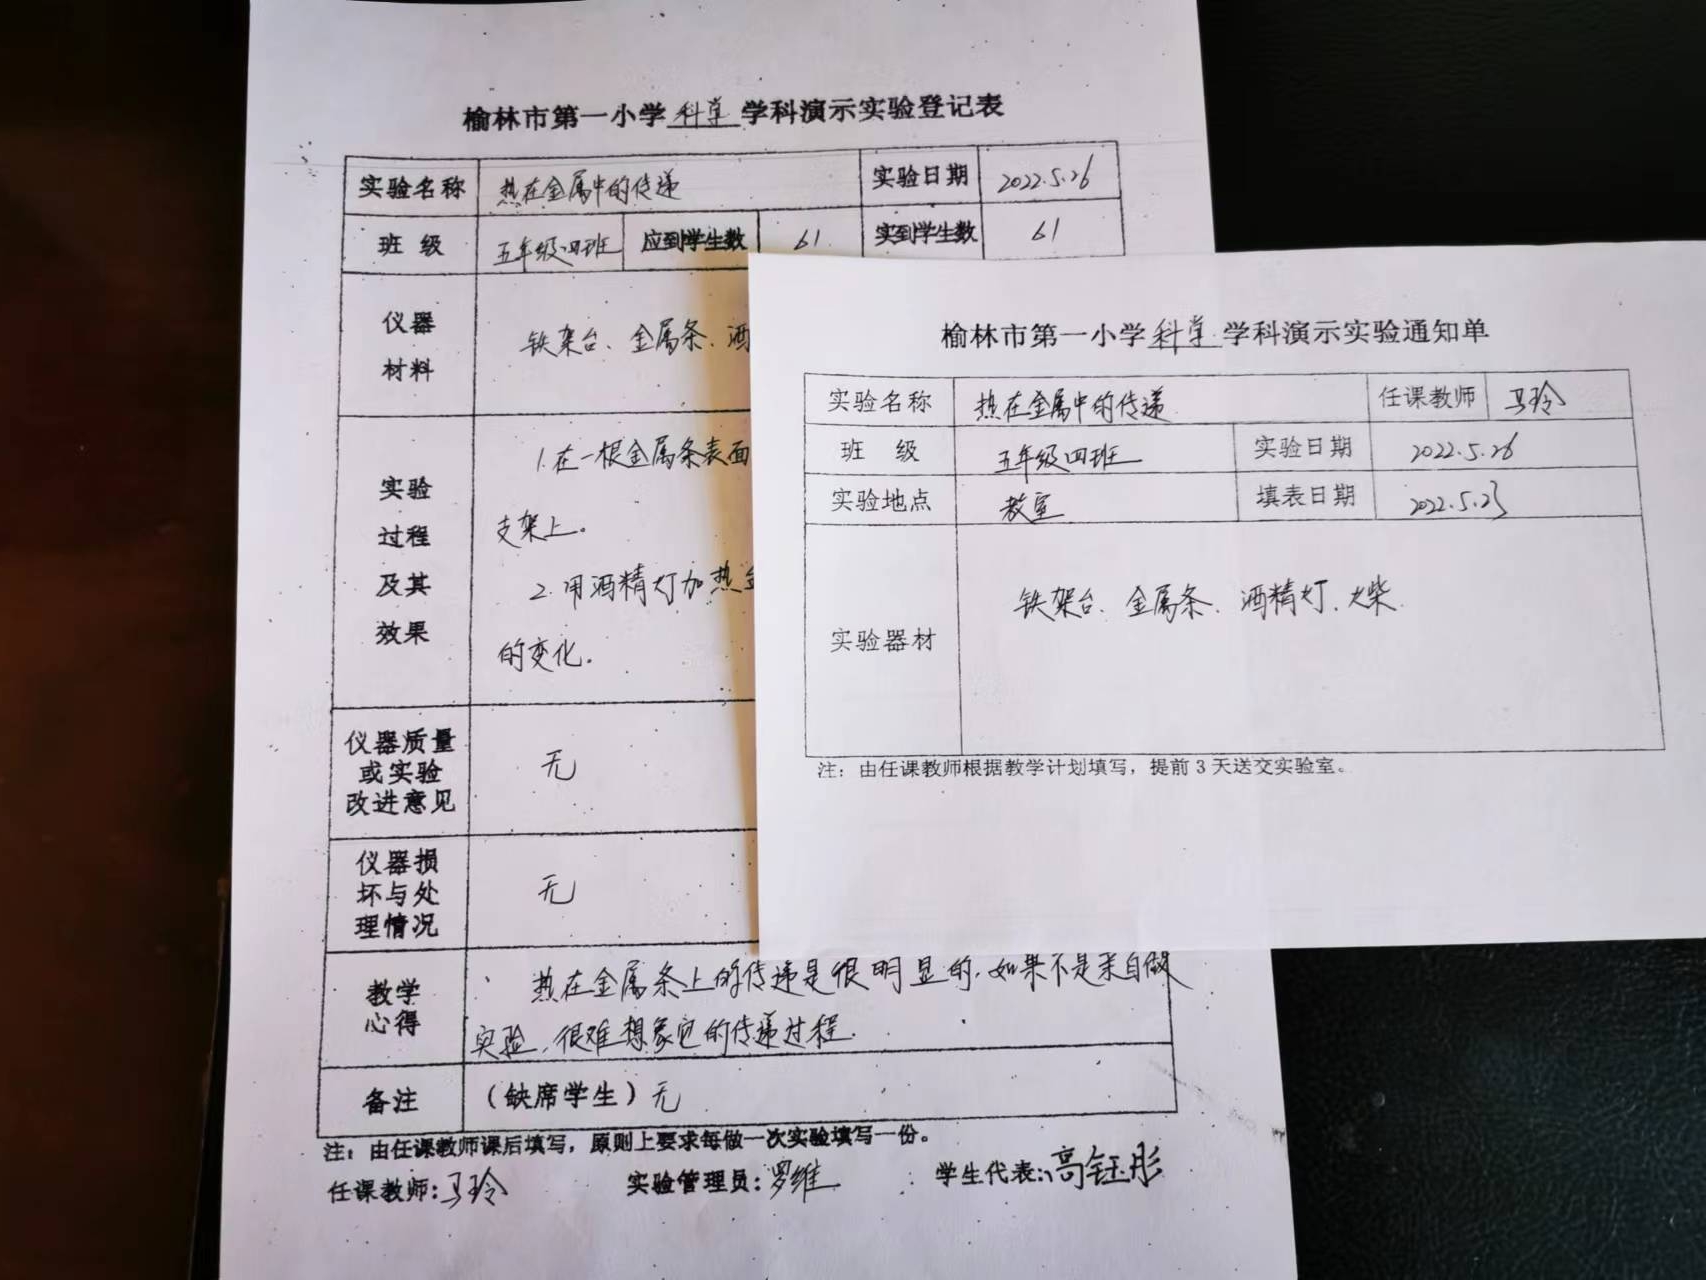 榆林市第一小学科学学科演示实验登记表
实验名称 热在金属中的传递 实验日期 2022.5.26
班 级 五年级四班 应到学生数 61 实到学生数 61
仪器
材料
铁架台、金属条、酒
实验
过程
及其
效果
1.在一根金属条表面
支架上。
2.用酒精灯加热
的变化.
仪器质量
或实验
改进意见
无
仪器损
坏与处
理情况
无
教学
心得
热在金属条上的传递是很明显的.如果不是亲自做
实验,很难想象它的传递过程.
备注 (缺席学生)无
注:由任课教师课后填写,原则上要求每做一次实验填写一份。
任课教师:马玲 实验管理员:罗维 学生代表:高钰彤
榆林市第一小学科学学科演示实验通知单
实验名称 热在金属中的传递 任课教师 马玲
班 级 五年级四班 实验日期 2022.5.26
实验地点 教室 填表日期 2022.5.23
实验器材 铁架台、金属条、酒精灯、火柴.
注:由任课教师根据教学计划填写,提前3天送交实验室。